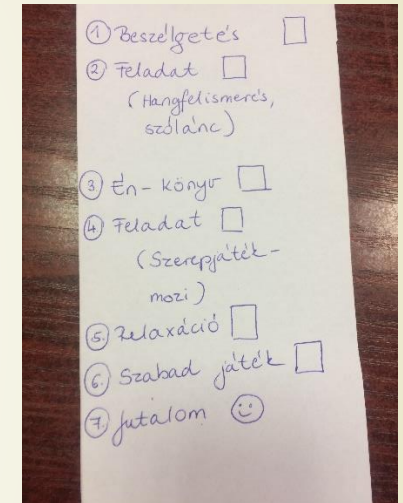 1 Beszélgetés
2 Feladat
(Hangfelismerés,
szólánc)
3 Én-könyv
4 Feladat
(Szerepjáték-
mozi)
5. Relaxáció
6. Szabad játék
7. Jutalom